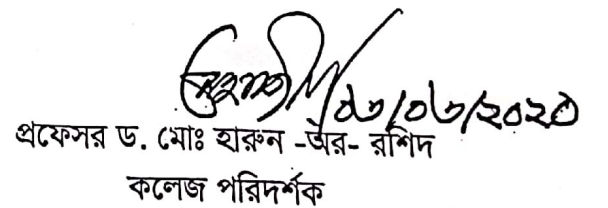 ০৯/০৬/২০২০
প্রফেসর ড. মোঃ হারুন -অর- রশিদ
কলেজ পরিদর্শক